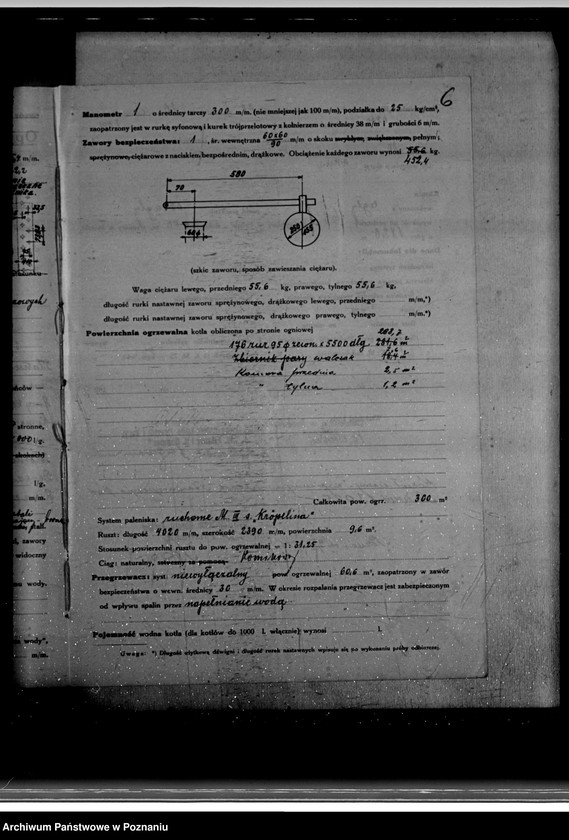 6
Manometr 1 o średnicy tarczy 300 m/m. (nie mniejszej jak 100 m/m), podziałka do 25 kg/cm²,
zaopatrzony jest w rurkę syfonową i kurek trójprzelotowy z kołnierzem o średnicy 38 m/m i grubości 6 m/m.
Zawory bezpieczeństwa: 1, śr. wewnętrzna 60x60/90 m/m o skoku zwykłym, zwiększonym, pełnym;
sprężynowe, ciężarowe z naciskiem bezpośrednim, drążkowe. Obciążenie każdego zaworu wynosi kg.
452,4
580
70
(szkic zaworu, sposób zawieszania ciężaru).
Waga ciężaru lewego, przedniego 55,6 kg, prawego, tylnego 55,6 kg,
długość rurki nastawnej zaworu sprężynowego, drążkowego lewego, przedniego m/m,*)
długość rurki nastawnej zaworu sprężynowego, drążkowego prawego, tylnego m/m.*)
Powierzchnia ogrzewalna kotła obliczona po stronie ogniowej
176 rur 95 φ x 5500 dłg m²
Zbiornik pary walczak m²
Komora przednia 2,5 m²
" tylna 1,2 m²
Całkowita pow. ogrz. 300 m²
System paleniska: ruchome M. III s. „Kröpelina"
Ruszt: długość 4020 m/m, szerokość 2390 m/m, powierzchnia 9,6 m².
Stosunek powierzchni rusztu do pow. ogrzewalnej = 1: 31,25
Ciąg: naturalny, sztuczny za pomocą
Przegrzewacz: syst. niewyłączalny pow. ogrzewalnej 60,6 m², zaopatrzony w zawór
bezpieczeństwa o wewn. średnicy 30 m/m. W okresie rozpalania przegrzewacz jest zabezpieczonym
od wpływu spalin przez napełnianie wodą
Pojemność wodna kotła (dla kotłów do 1000 l. włącznie) wynosi l.
Uwaga: *) Długość użytkową dźwigni i długość rurek nastawnych wpisuje się po wykonaniu próby odbiorczej.
Archiwum Państwowe w Poznaniu